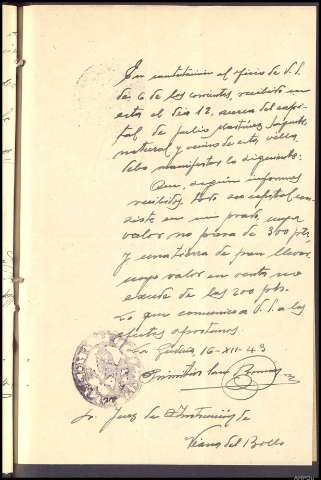 En contestación al oficio de V.S.
de 6 de los corrientes, recibido en
esta el día 12, acerca del capi-
tal de Julio Martínez
natural y vecino de esta villa,
debo manifestar lo siguiente:
Que, según informes
recibidos, todo su capital con-
siste en un prado, cuyo
valor no pasa de 300 pts,
y una tierra de pan llevar
cuyo valor en venta no
excede de las 200 pts.
Lo que comunico a V.S. a los
efectos oportunos.
La Gudiña 16-XII-43
Sr. Juez de Instrucción de
Viana del Bollo
AHPOU